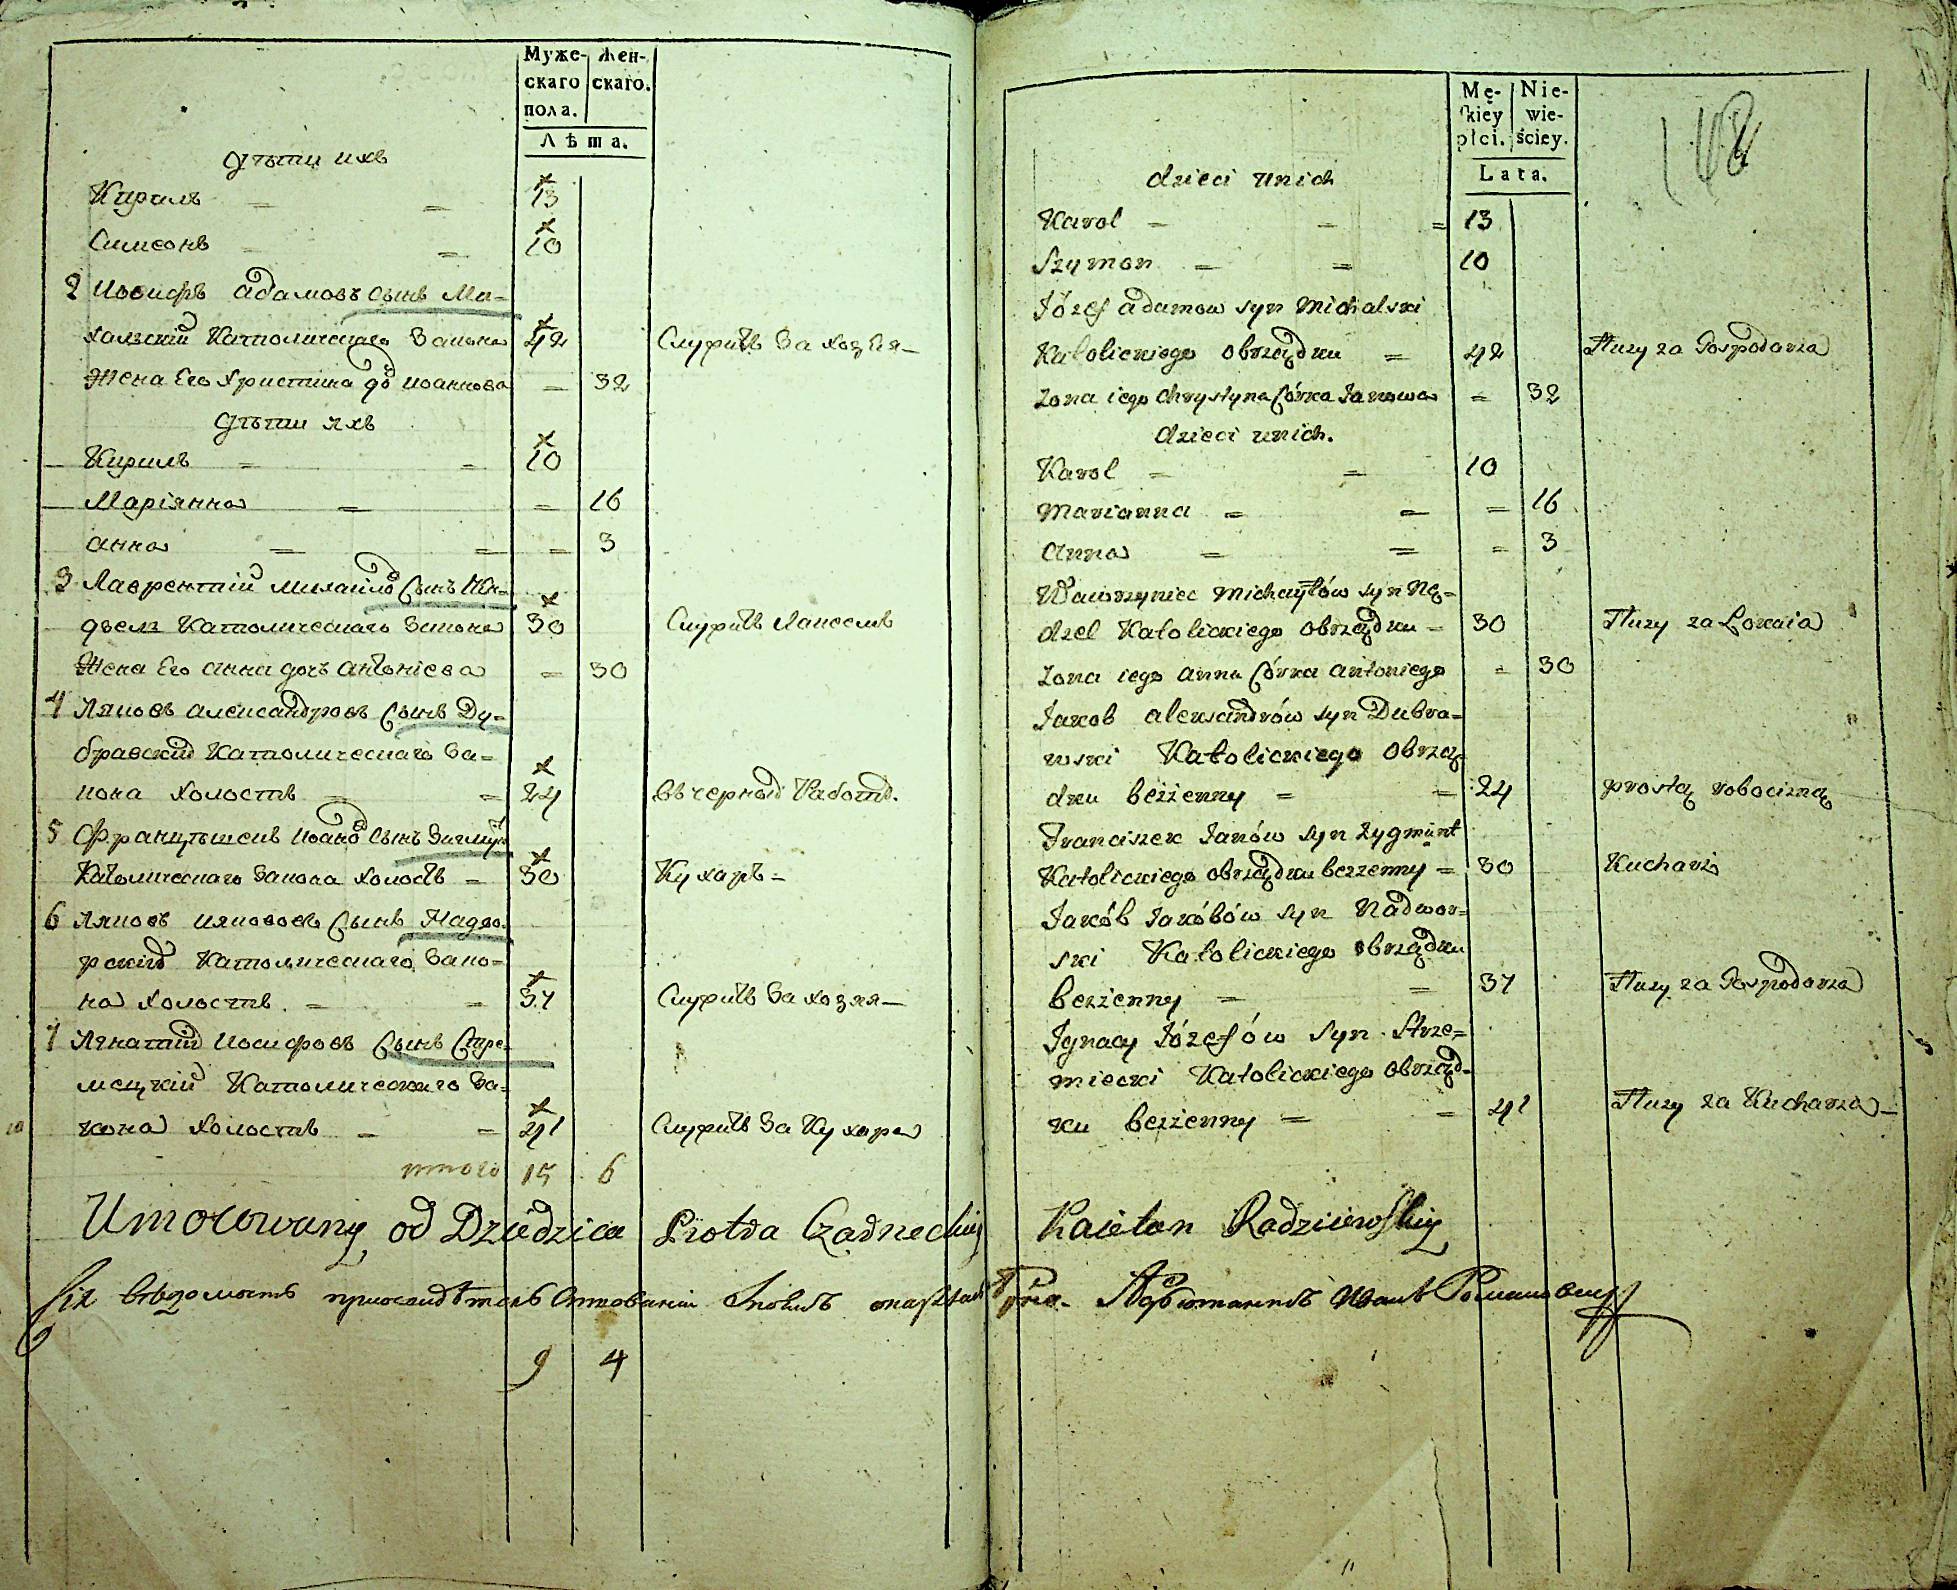 Муже-
скаго
пола.
Жен-
скаго.
Лѣта.
дѣти ихъ
Кирилъ = = 13
Симеонъ = 10
2 Иосифъ адамовъ Сынъ Ми-
халский Католическаго Закона 42 Служитъ За хозяя-
Жена Его Христина до Иоаннова = 32
дѣти ихъ
Кирилъ = = 10
Маріянна = = 16
анна = = = 3
3 Лаврентій михайло Сынъ Нен-
дзелъ Католическаго Закона 30 Служитъ Лакеемъ
Жена Его анна дочъ антоніева = 30
4 Якобъ александровъ Сынъ Ду-
бравский Католическаго За-
кона холостъ = = 24 въ черной Работѣ.
5 Францышекъ Иоано Сынъ Зигмунт
Католическаго Закона холостъ = 30 Кухаръ =
6 Якобъ Якововъ Сынъ Надво-
рский Католическаго Зако-
на холостъ. = = 37 Служитъ За хозяя-
7 Игнатий Иосифовъ Сынъ Стре-
мецкий Католическаго За-
кона холостъ = = 41 Служитъ За Кухара
итого 15 6
Umocowany od Dziedzica Piotra Czadneckiey
9 4
Mę-
skiey
płci.
Nie-
wie-
ściey.
Lata.
dzieci unich
Karol = = = 13
Szymon = = 10
Józef adamow syn Michalski
Katolickiego obrządku = 42 Służy za Gospodarza
Zona iego Chrystyna Córka Janowa = 32
dzieci unich.
Karol = = 10
Marianna = = = 16
Anna = = = 3
Wawrzyniec Michayłów syn Nę=
dzel Katolickiego obrządku = 30 Służy za Lokaia
Zona iego Anna Córka Antoniego = 30
Jakob alexandrów syn Dubra=
wski Katolickiego Obrzą=
dku bezżenny = = 24 prostą robocizną
Franciszek Janów syn Zygmunt
Katolickiego obrządku bezzenny = 30 Kucharz
Jakób Jakóbów syn Nadwor=
ski Katolickiego obrządku
bezżenny = = 37 Służy za Gospodarza
Jgnacy Józefów syn Strze=
miecki Katolickiego Obrząd-
ku bezżenny = = 41 Służy za Kucharza -
Kaietan Radziiewskiy